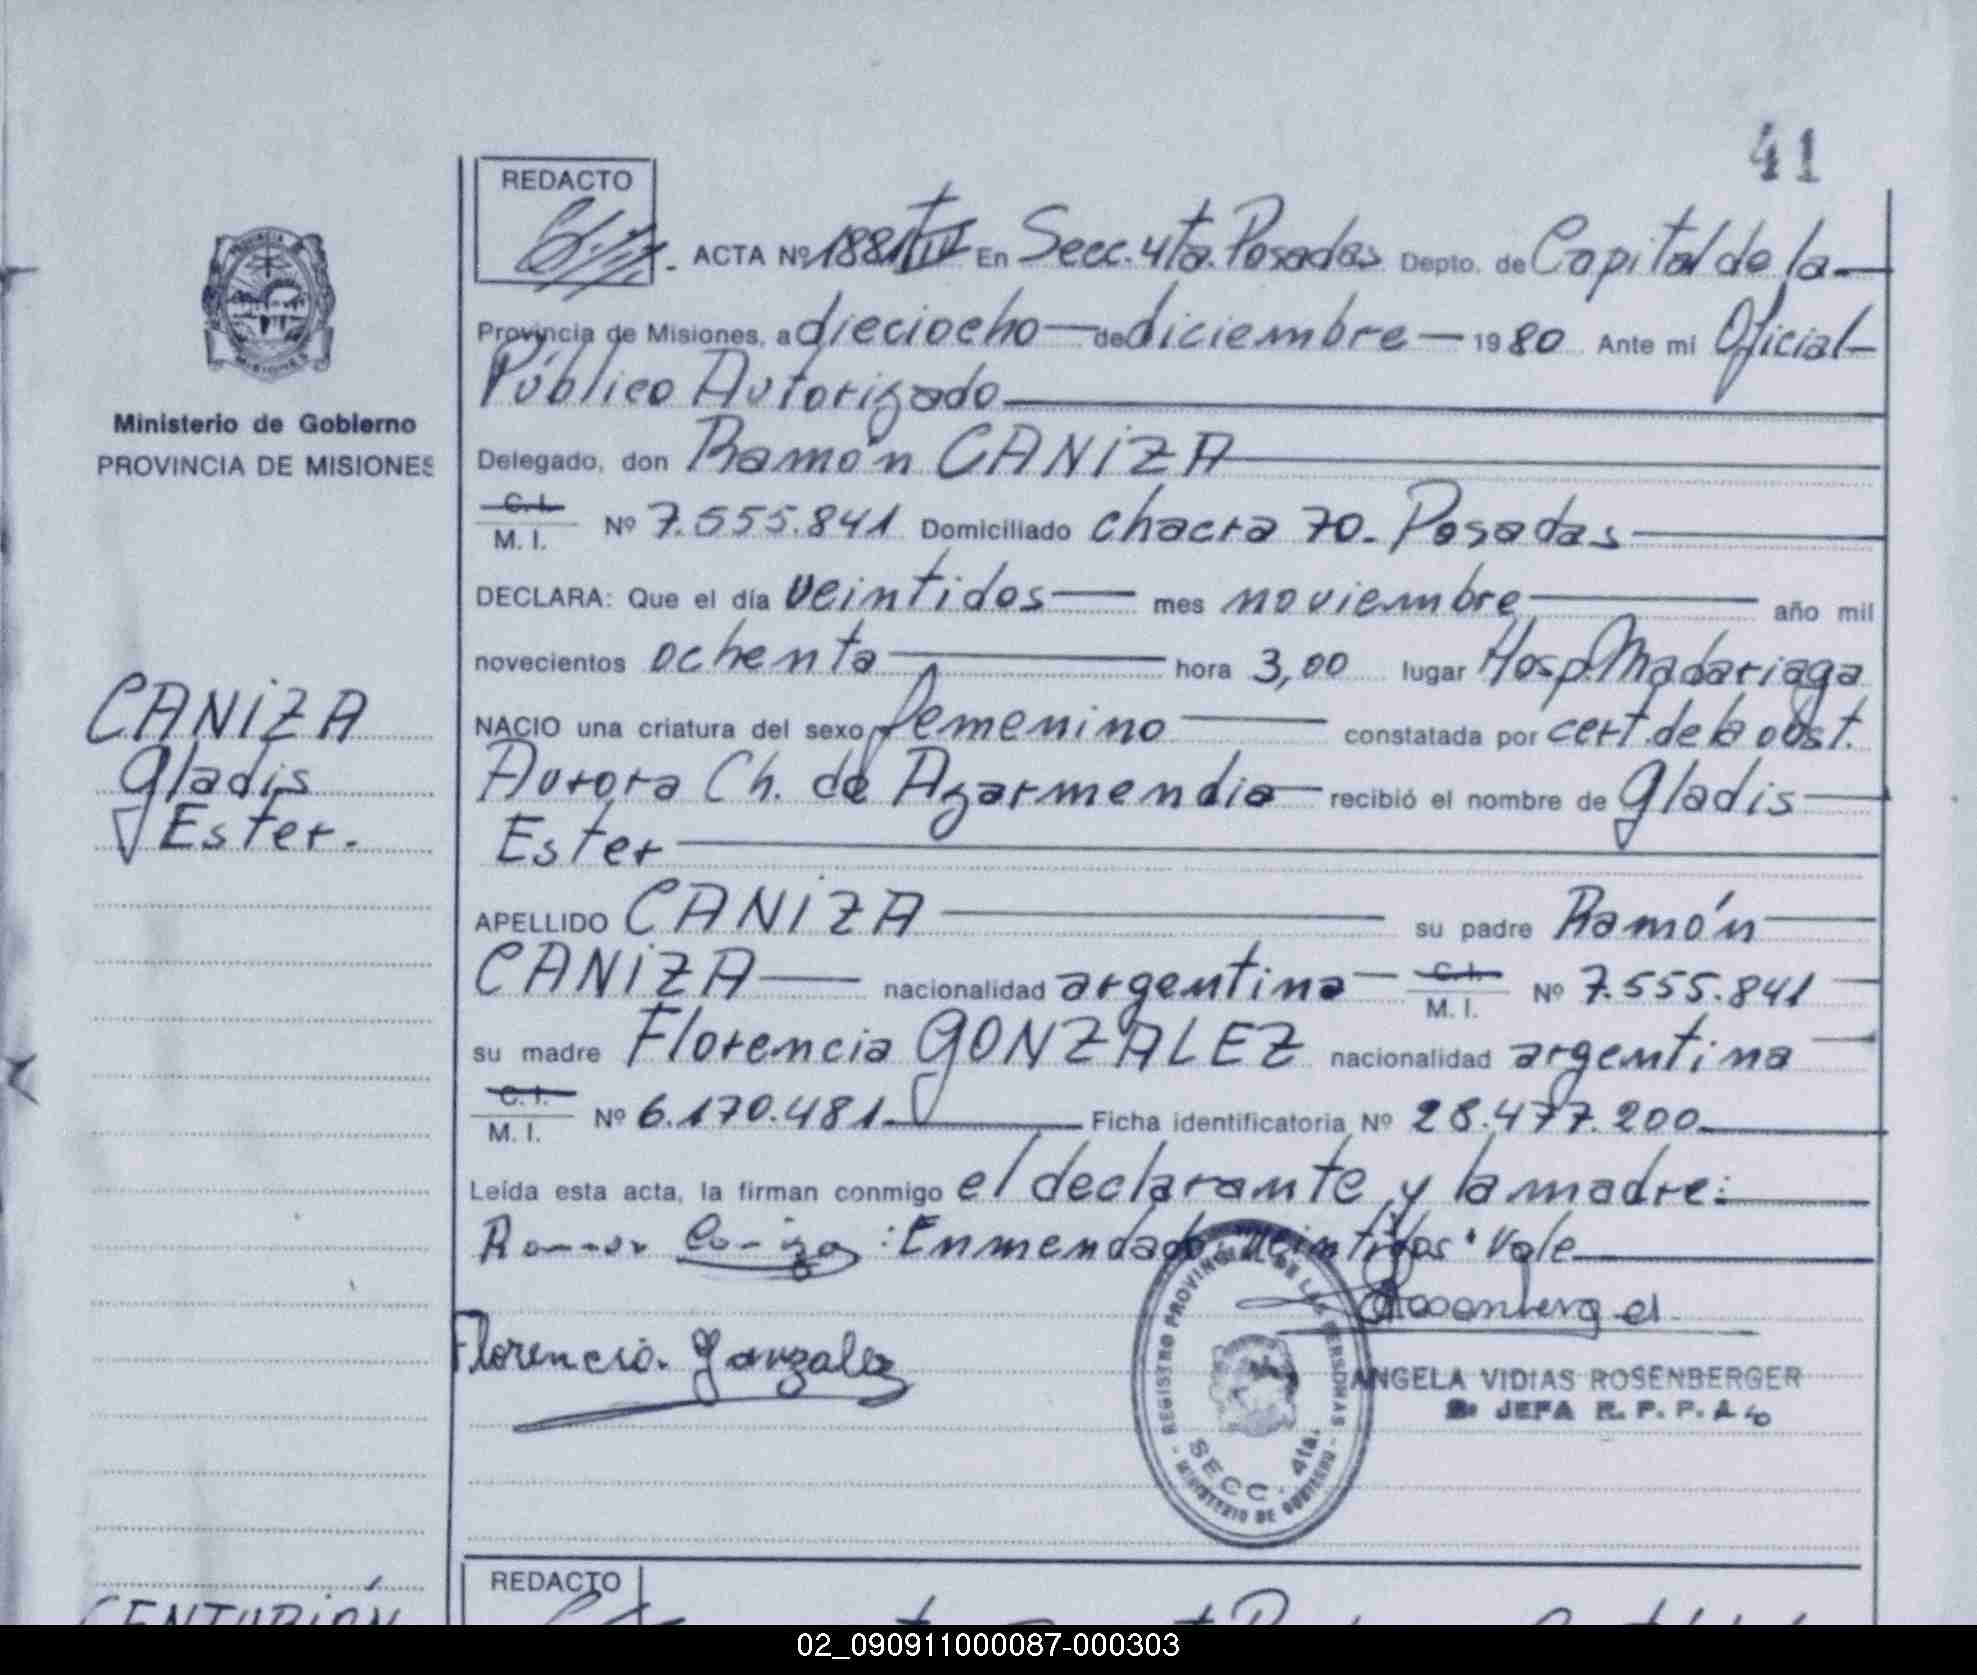 41
REDACTO
ACTA Nº 1881 En Secc. 4ta. Posadas Depto. de Capital de la
Provincia de Misiones, a dieciocho de diciembre 1980 Ante mi Oficial
Público Autorizado
Ministerio de Gobierno
PROVINCIA DE MISIONES
Delegado, don Ramón CANIZA
C. I.
M. I. Nº 7.555.841 Domiciliado chacra 70. Posadas
DECLARA: Que el día veintidos mes noviembre año mil
novecientos ochenta hora 3,00 lugar Hosp. Madariaga
CANIZA
Gladis
Ester.
NACIO una criatura del sexo femenino constatada por cert. de la obst.
Aurora Ch. de Azarmendia recibió el nombre de Gladis
Ester
APELLIDO CANIZA su padre Ramón
CANIZA nacionalidad argentina C. I. M. I. Nº 7.555.841
su madre Florencia GONZALEZ nacionalidad argentina
C. I.
M. I. Nº 6.170.481 Ficha identificatoria Nº 28.477.200
Leída esta acta, la firman conmigo el declarante y la madre:
Ramon Caniza : Enmendado: "veintidos" Vale
Florencia Gonzalez
ANGELA VIDIAS ROSENBERGER
JEFA R. P. P.
REGISTRO PROVINCIAL DE LAS PERSONAS
SECC. 4ta.
MINISTERIO DE GOBIERNO
REDACTO
CENTURIÓN
02_090911000087-000303